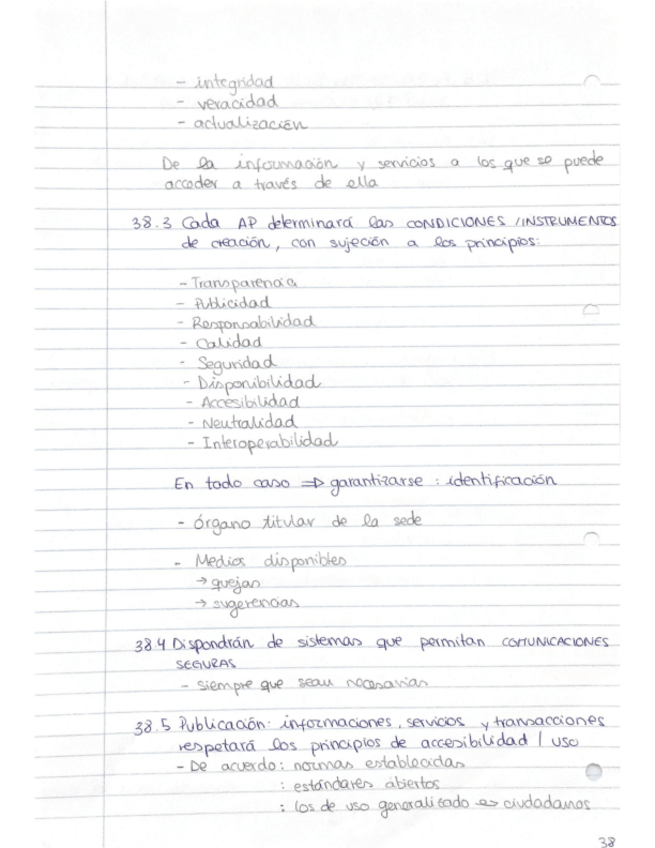 - integridad
- veracidad
- actualización
De la información y servicios a los que se puede
acceder a través de ella
38.3 Cada AP determinará las CONDICIONES / INSTRUMENTOS
de creación, con sujeción a los principios:
- Transparencia
- Publicidad
- Responsabilidad
- Calidad
- Seguridad
- Disponibilidad
- Accesibilidad
- Neutralidad
- Interoperabilidad
En todo caso ⇒ garantizarse : identificación
- órgano titular de la sede
- Medios disponibles
→ quejas
→ sugerencias
38.4 Dispondrán de sistemas que permitan COMUNICACIONES
SEGURAS
- siempre que sean necesarias
38.5 Publicación: informaciones, servicios y transacciones
respetará los principios de accesibilidad / uso
- De acuerdo : normas establecidas
: estándares abiertos
: los de uso generalizado ↔ ciudadanos
38